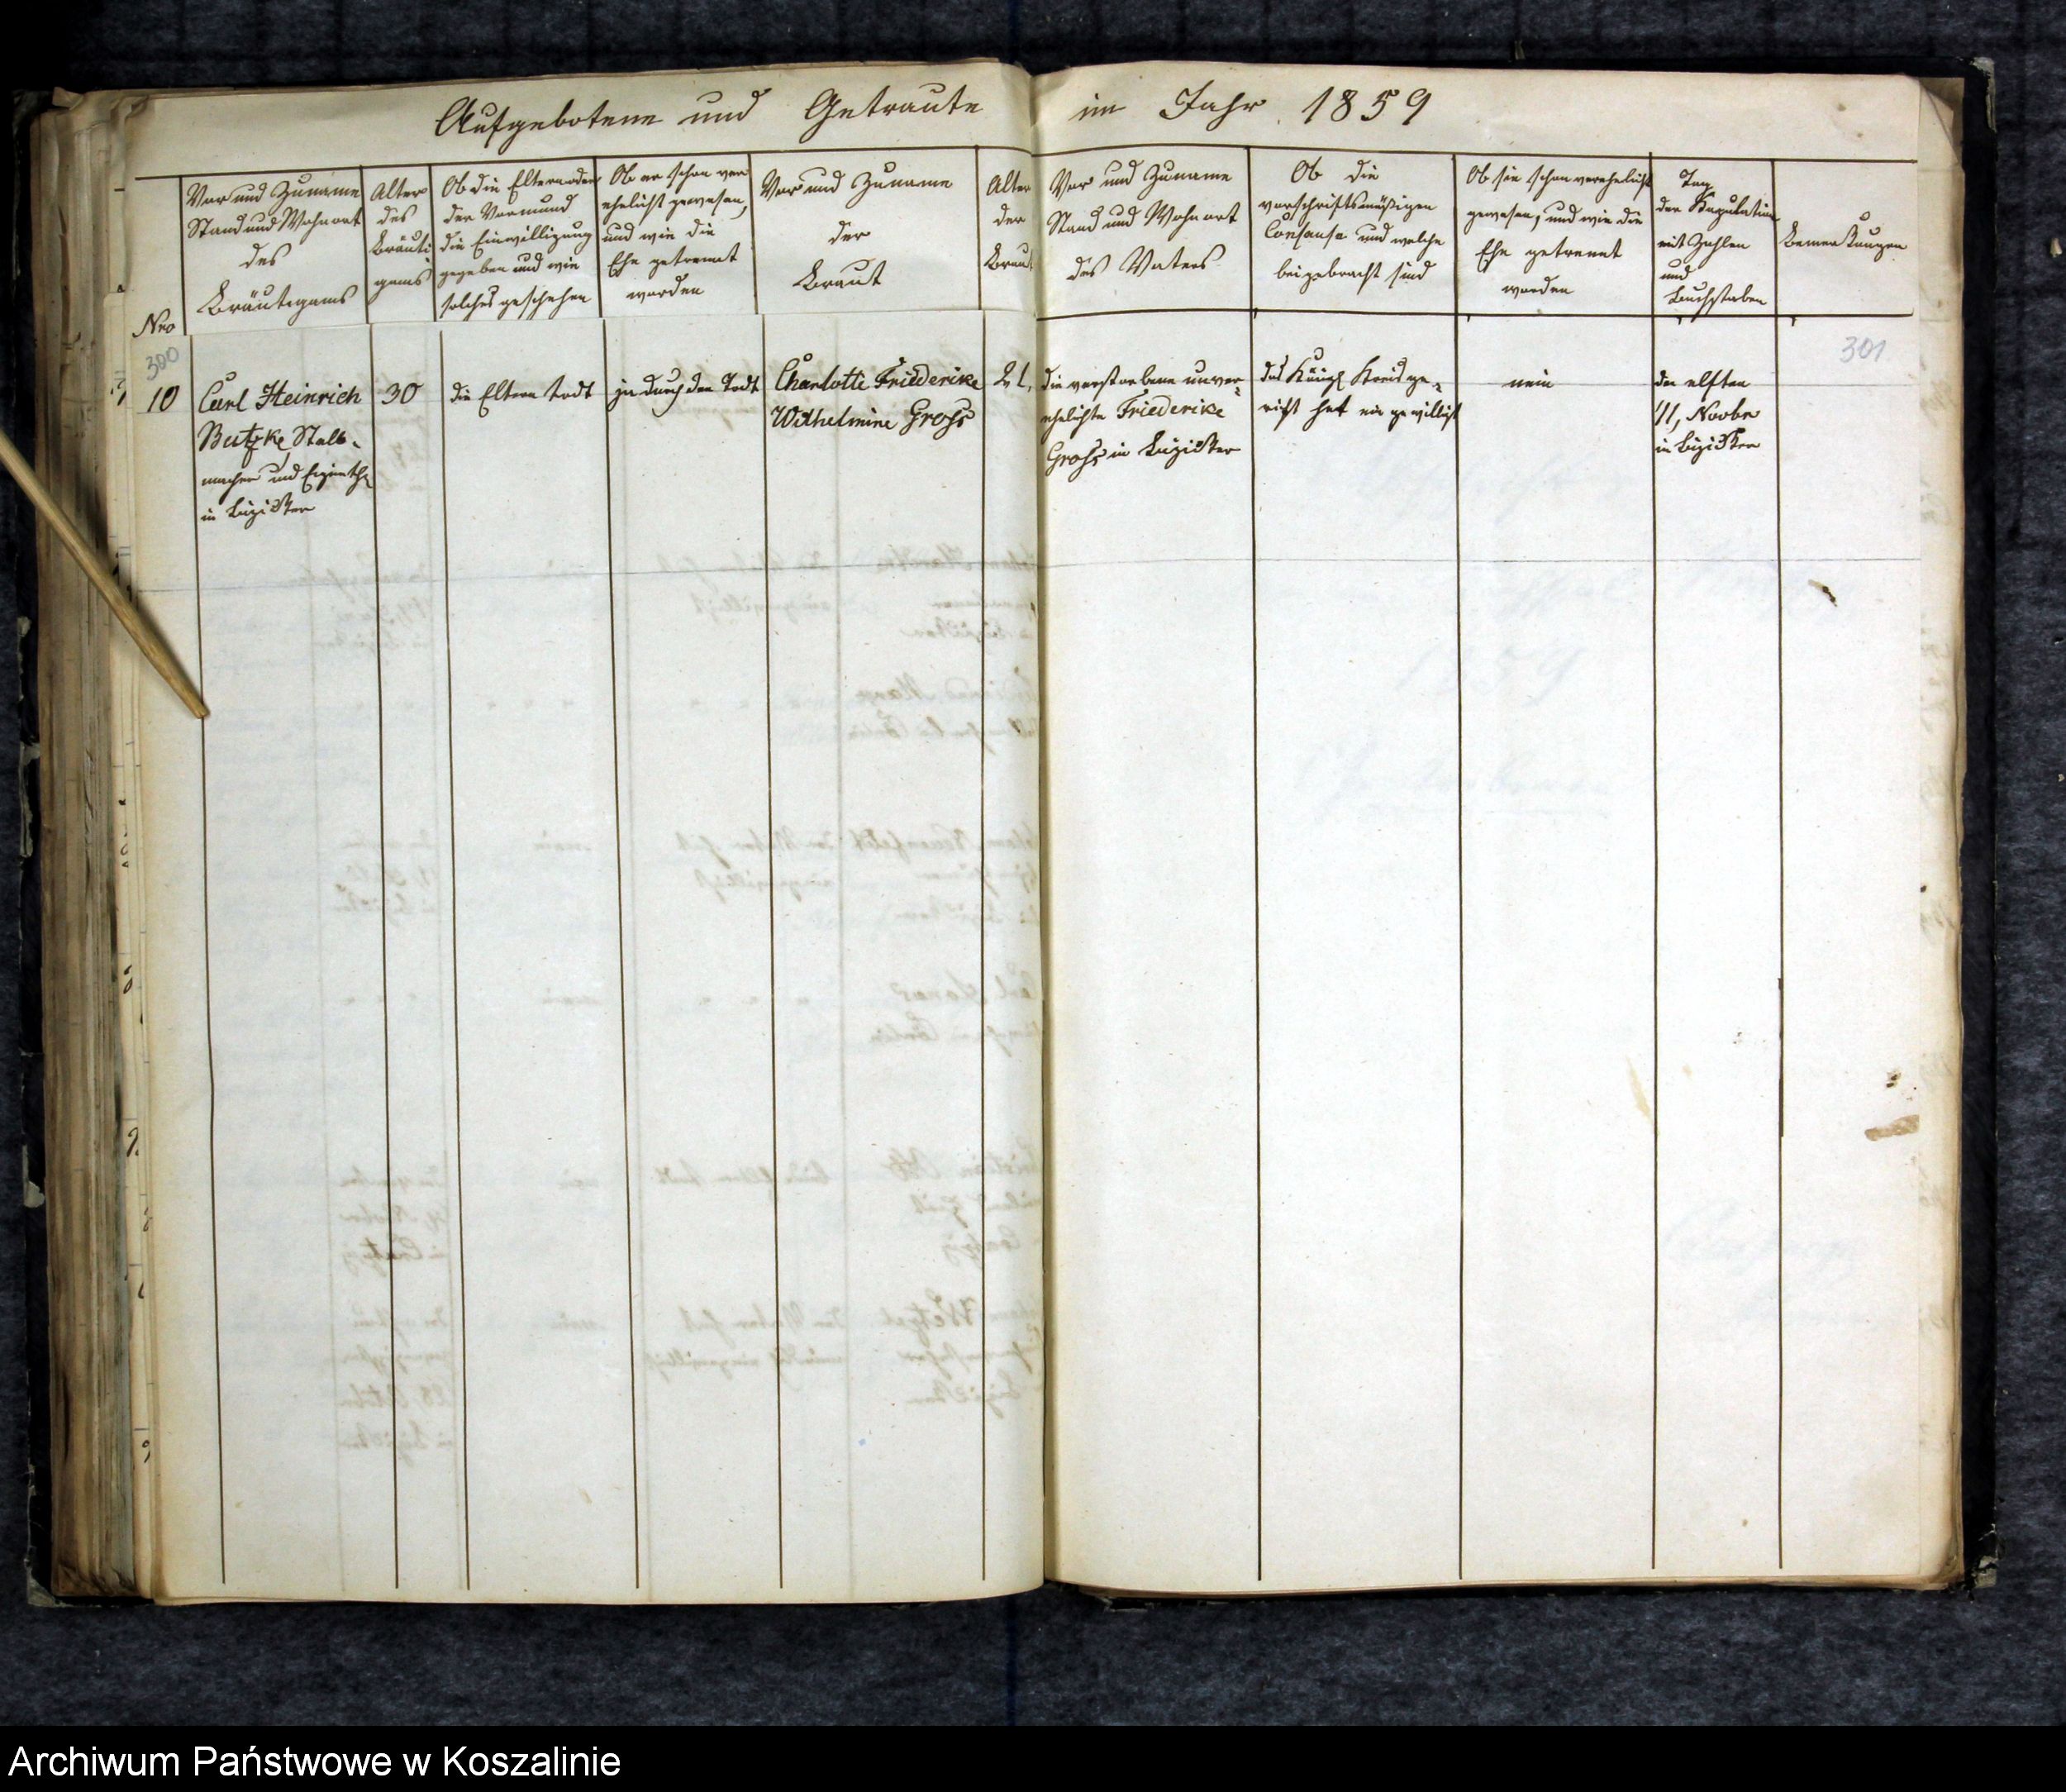 Aufgebotene und Getraute im Jahr 1859
Nro
Vor und Zuname
Stand und Wohnort
des
Bräutigams
Alter
des
Bräuti
gams
Ob die Eltern oder
der Vormund
die Einwilligung
gegeben und wie
solches geschehen
Ob er schon ver
ehelicht gewesen,
und wie die
Ehe getrennt
worden
Vor und Zuname
der
Braut
Alter
der
Braut
Vor und Zuname
Stand und Wohnort
des Vaters
Ob die
vorschriftsmäßigen
Consense und welche
beigebracht sind
Ob sie schon verehelicht
gewesen, und wie die
Ehe getrennt
worden
Tag
der Kopulation
mit Zahlen
und
Buchstaben
Bemerkungen
300
301
10
Carl Heinrich
Butzke, Stell-
macher und Eigenth
in
30
die Eltern todt
ja durch den Todt
Charlotte Friederike
Wilhelmine Gross
die verstorbene unver-
ehelichte Friederike
Gross in
das Königl Kreisge-
richt hat eingewilligt
nein
den elften
11, Novbr
in
Archiwum Państwowe w Koszalinie